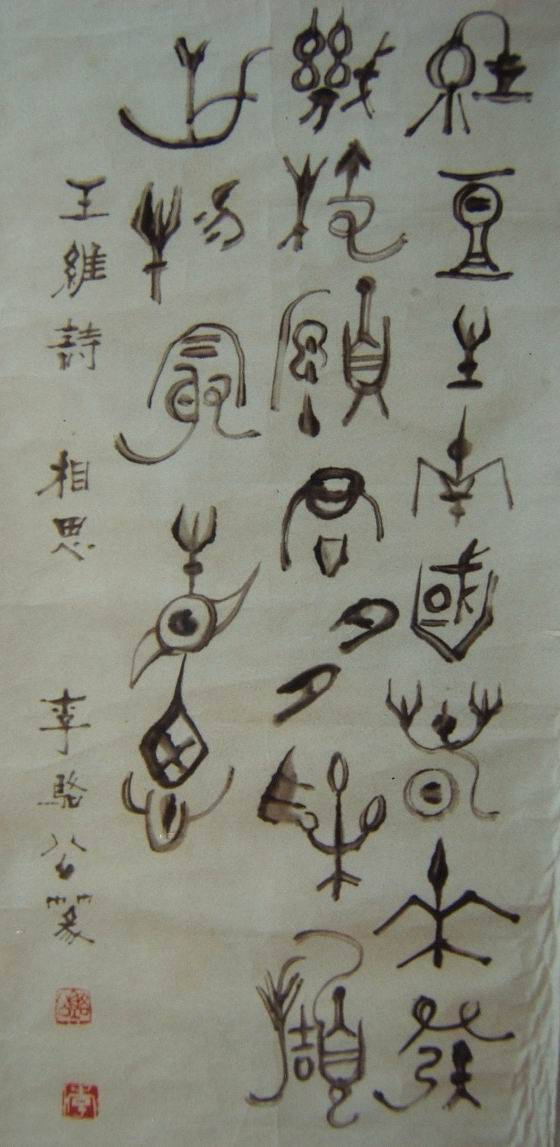 紅豆生南國春來發
幾枝願君多采擷
此物最相思
王維詩 相思 李駱公篆
李